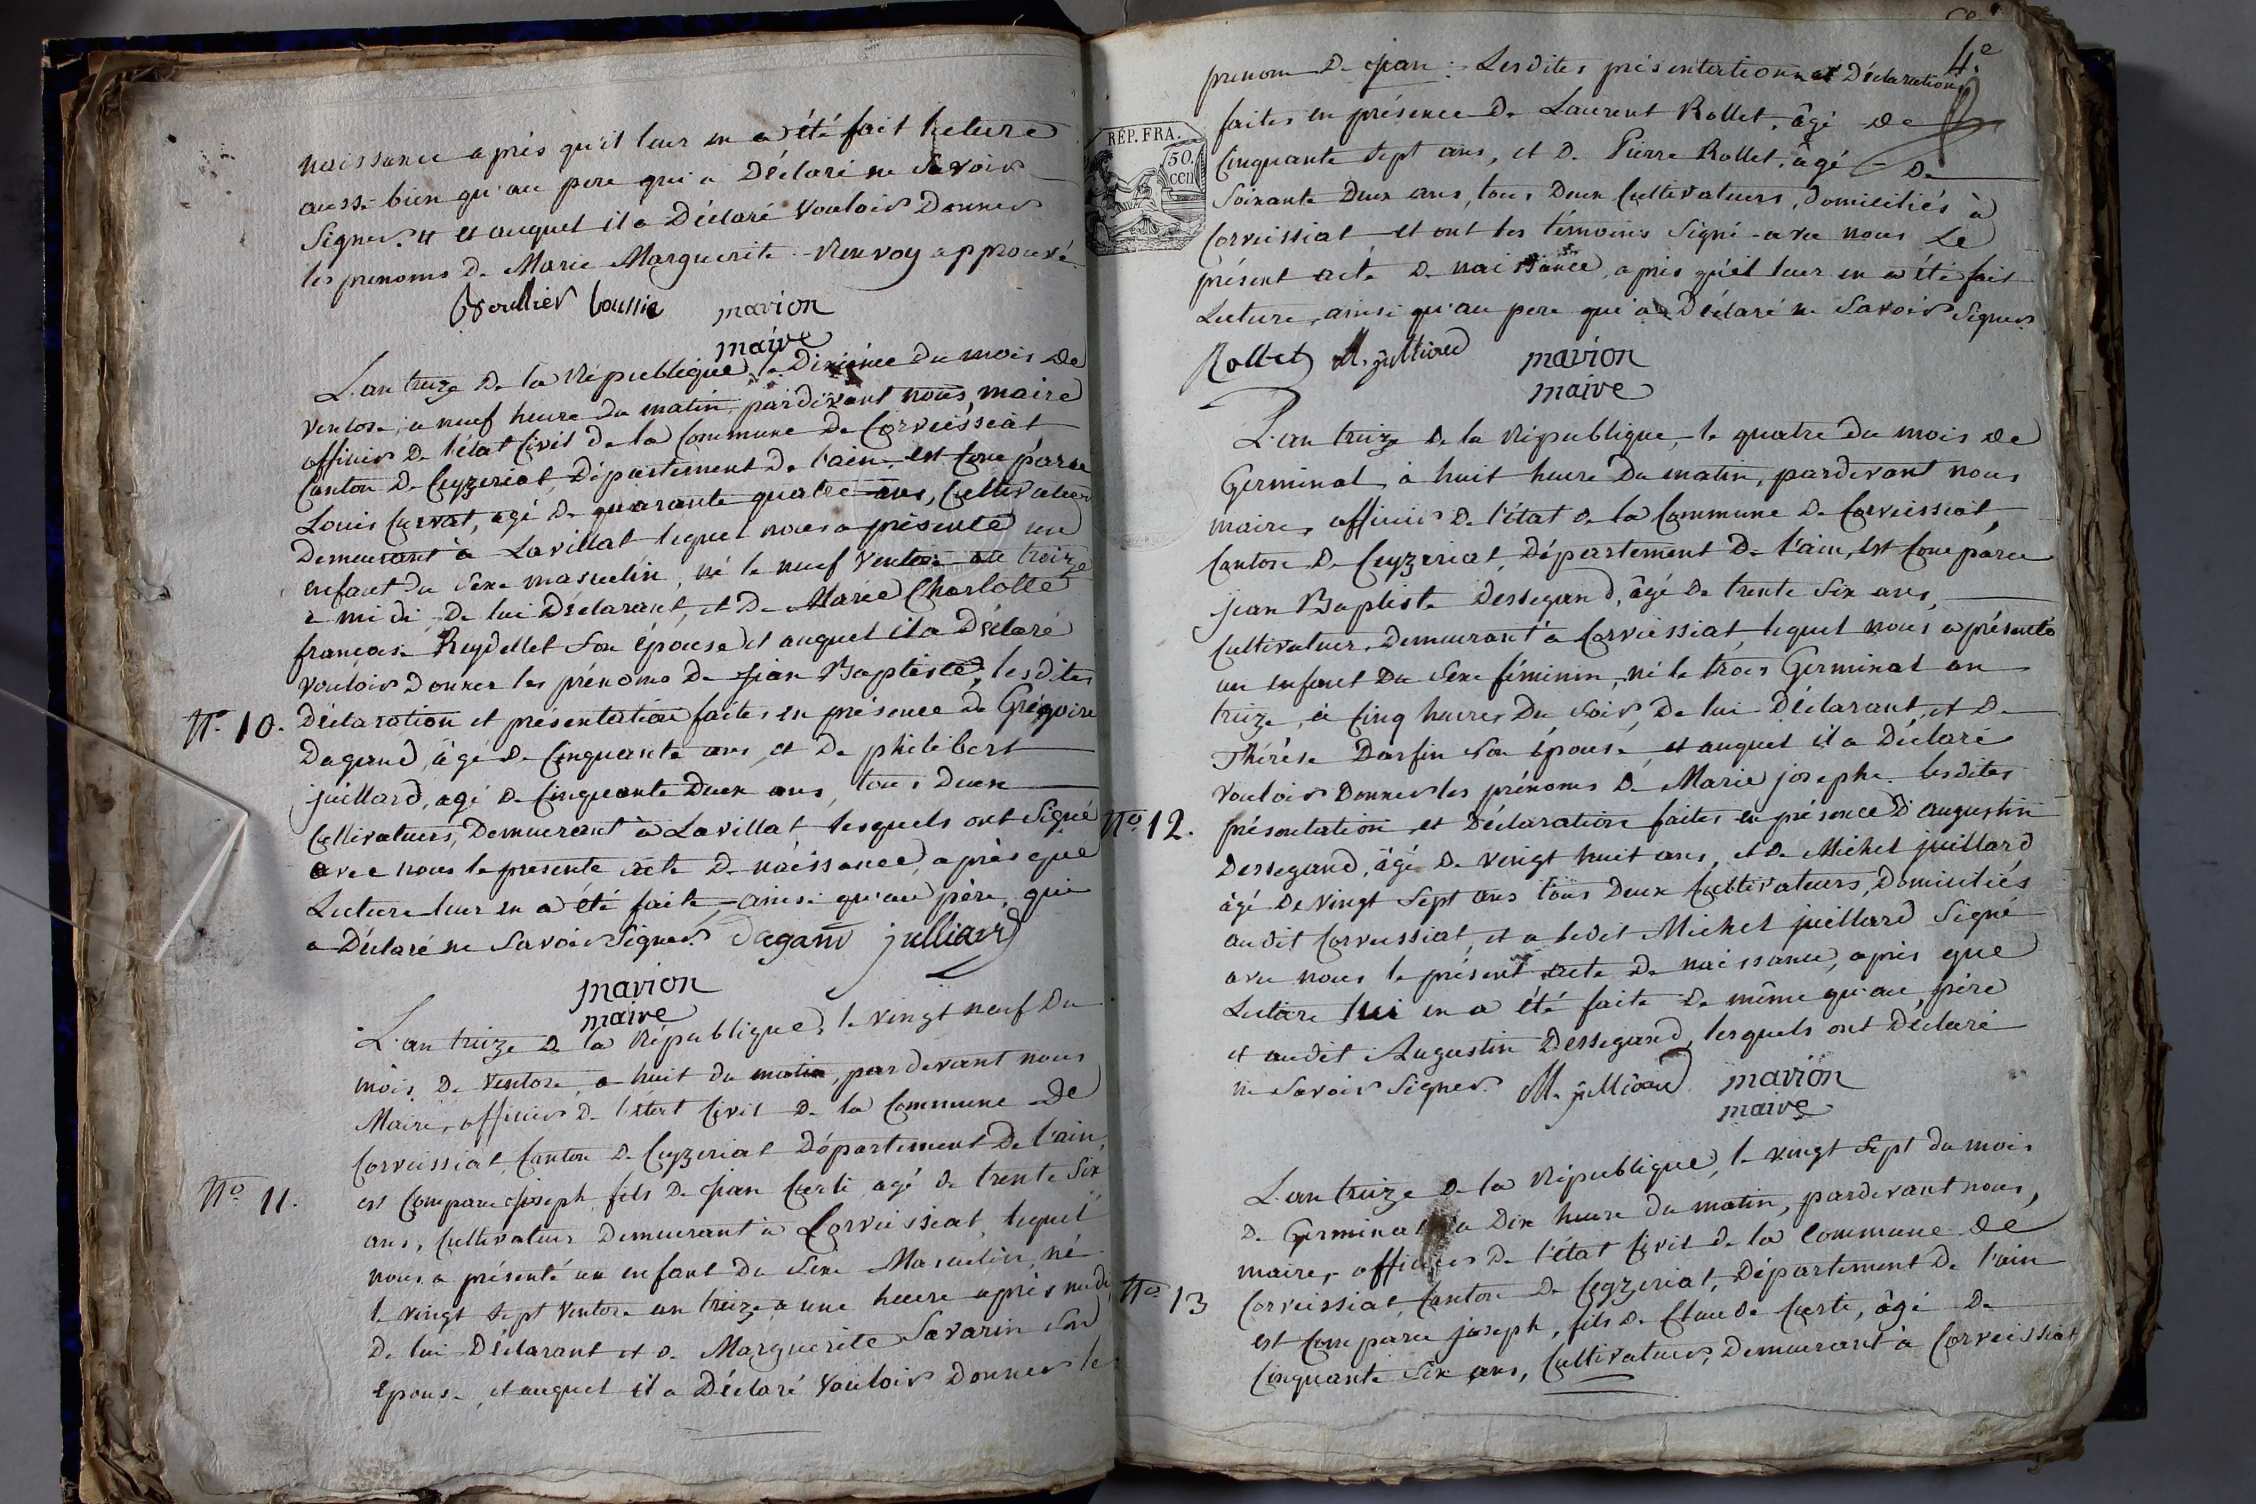 naissance après qu'il leur en a été fait lecture
aussi bien qu'au pere qui a Déclaré ne Savoir
Signer. et auquel il a Déclaré Vouloir Donner
les prenoms De Marie Marguerite - Renvoy approuvé
marion
maire
L'an treize De la République, le Dixième du mois de
Ventose, a neuf heure du matin, pardevant nous, maire
officier De l'état Civil de la Commune De Corveissiat
Canton De Ceyzeriat, Département De l'ain, est Comparu
Louis Curvat, agé De quarante quatre ans, Cultivateur
Demeurant à Lavillat lequel nous a présenté un
enfant du Sexe masculin, né le neuf Ventose an treize
a midi, De lui Déclarant, et De Marie Charlotte
françoise Reydellet Son épouse et auquel il a Déclaré
vouloir Donner les prénoms De Jean Baptiste, lesdites
N.° 10. Déclaration et présentation faites en présence de Grégoire
Dagand, âgé De Cinquante ans, et De philibert
juillard, agé De Cinquante Deux ans, tous Deux
Cultivateurs, Demeurant à Lavillat lesquels ont Signé
avec nous le presente acte De naissance, après que
Lecture leur en a été faite, ainsi qu'au père, qui
a Déclaré ne Savoir Signer. Dagand julliard
marion
maire
L'an treize De la République, le vingt neuf Du
mois De Ventose, a huit du matin, pardevant nous
Maire, officier De l'état Civil De la Commune De
Corveissiat, Canton De Ceyzeriat Département De l'ain,
N.° 11. est Comparu Joseph, fils De Jean Curti agé de trente Six
ans, Cultivateur Demeurant à Corveissiat, lequel
nous a présenté un enfant du Sexe Masculin, né
le vingt Sept Ventose an treize à une heure après midi
De lui Déclarant et De Marguerite Savarin Son
épouse, et auquel il a Déclaré Vouloir Donner le
4.e
prenom De Jean : Lesdites présentation et Déclaration
RÉP. FRA.
50.
cen
faites en présence De Laurent Rollet, âgé de
Cinquante Sept ans, et De Pierre Rollet, âgé De
Soixante Deux ans, tous Deux Cultivateurs, Domiciliés à
Corveissiat et ont les témoins Signé avec nous Le
présent acte De naissance, après qu'il leur en a été fait
Lecture, ainsi qu'au pere qui a Déclaré ne Savoir Signer
Rollet M. julliard marion
maire
L'an treize De la République, le quatre du mois de
Germinal, à huit heure Du matin, pardevant nous
maire, officier De l'état De la Commune De Corveissiat,
Canton De Ceyzeriat, Département De l'ain, est Comparu
jean Baptiste Dessegand, âgé De trente Six ans,
Cultivateur, Demeurant à Corveissiat, lequel nous a présenté
un enfant Du Sexe féminin, né le trois Germinal an
treize, à Cinq heures Du Soir, De lui Déclarant, et De
Thérèse Darfin Son épouse, et auquel il a Déclaré
vouloir Donner les prénoms De Marie josephe. lesdites
N.° 12. présentation et Déclaration faites en présence D'augustin
Dessegand, âgé De vingt huit ans, et De Michel juillard
âgé De Vingt Sept ans tous Deux Cultivateurs, Domiciliés
audit Corveissiat, et a ledit Michel juillard Signé
avec nous le présent acte De naissance, après que
Lecture lui en a été faite De même qu'au père
et audit Augustin Dessegand, lesquels ont Déclaré
ne Savoir Signer. M. julliard marion
maire
L'an treize De la République, le vingt Sept du mois
De Germinal a Dix heure du matin, pardevant nous,
maire, officier De l'état Civil De la Commune De
N.° 13 Corveissiat, Canton De Ceyzeriat, Département De l'ain
est Comparu joseph, fils De Claude Curti, âgé De
Cinquante Six ans, Cultivateur, Demeurant à Corveissiat